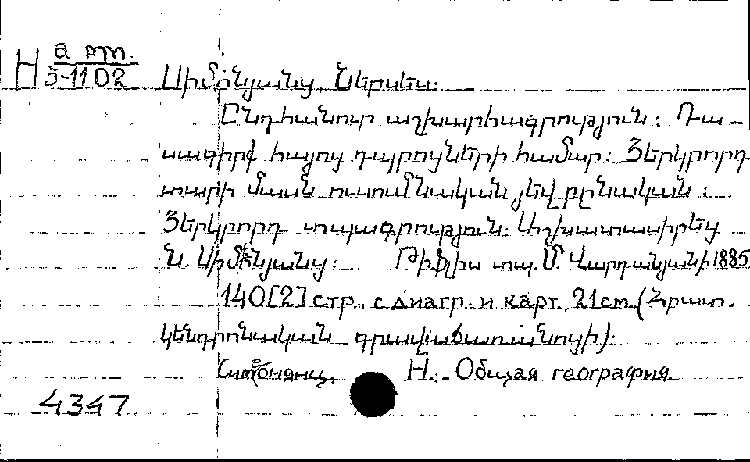 H а арт.
5-1102 Սիմօնյանց Ներսես.
Ընդհանուր աշխարհագրություն: Դա-
սագիրք հայոց դպրոցների համար: Յերկրորդ
տարի մասն ուսումնական յեվ բընական:
Յերկրորդ տպագրություն. Աշխատասիրեց
Ն. Սիմօնյանց: Թիֆլիս տպ. Մ. Վարդանյանի 1885
140[2] стр. с диагр. и карт. 21cm (Հրատ.
կենդրոնական գրավաճառանոցի):
Симонянц, Н. Общая география.
4347